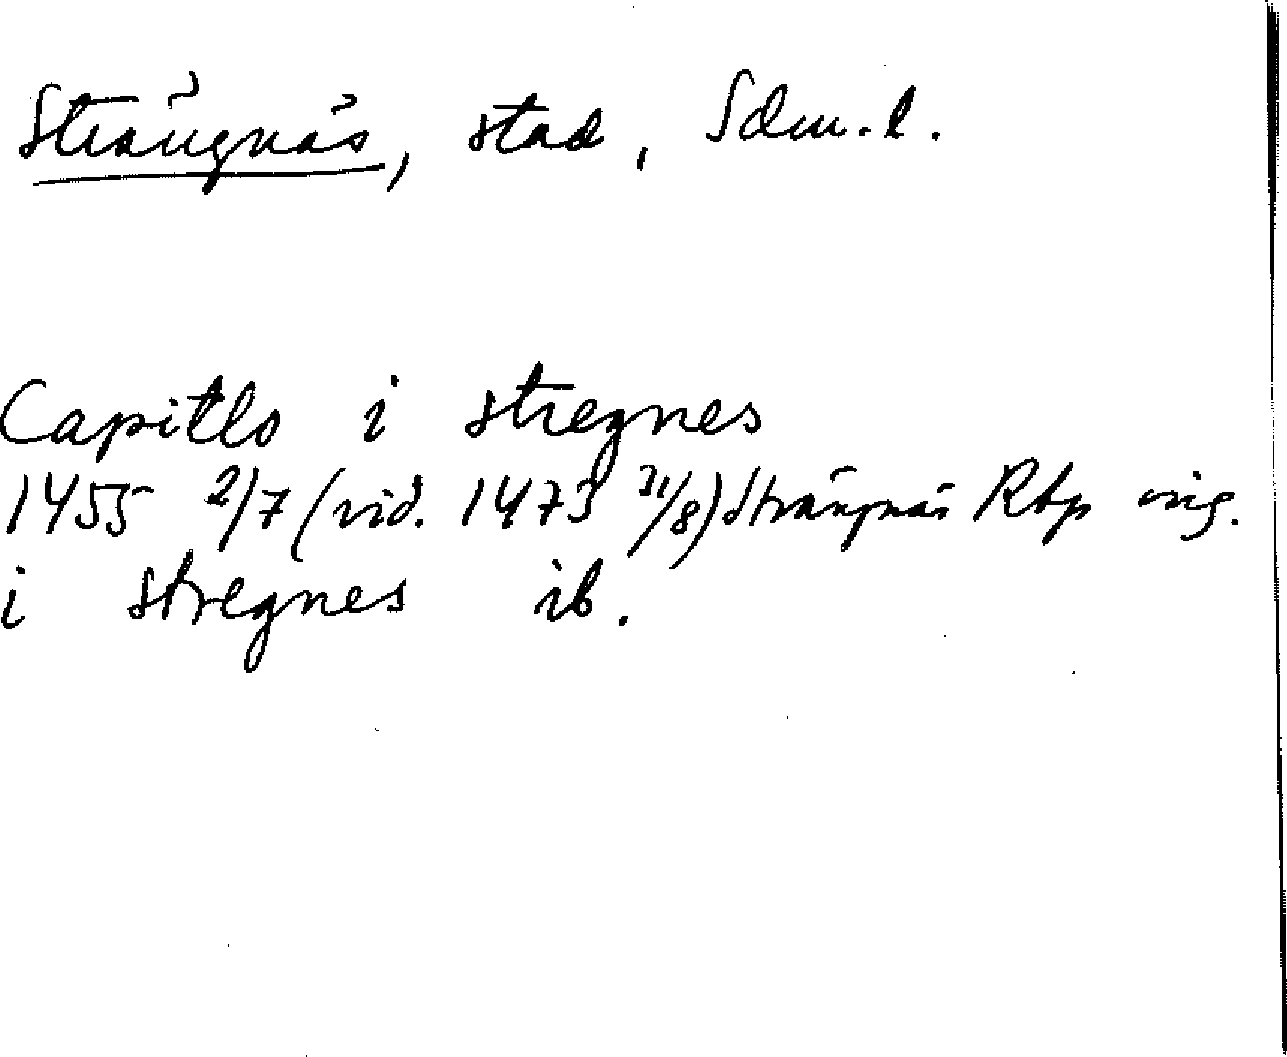 Strängnäs, stad, Sdm. l.
Capitlo i stregnes
1455 2/7 (vid. 1473 31/8) Strängnäs RAp orig.
i stregnes ib.